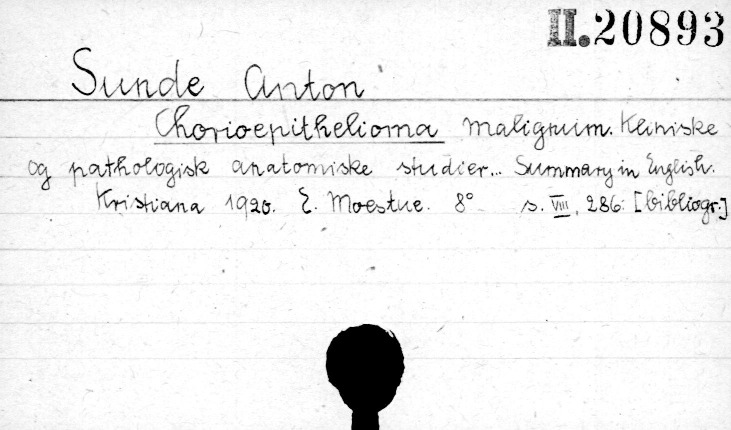 II.20893
Sunde Anton
Chorioepithelioma malignum. Kliniske
og pathologisk anatomiske studier... Summary in English.
Kristiana 1920. E. Moestue. 8° s. VIII, 286. [bibliogr.]